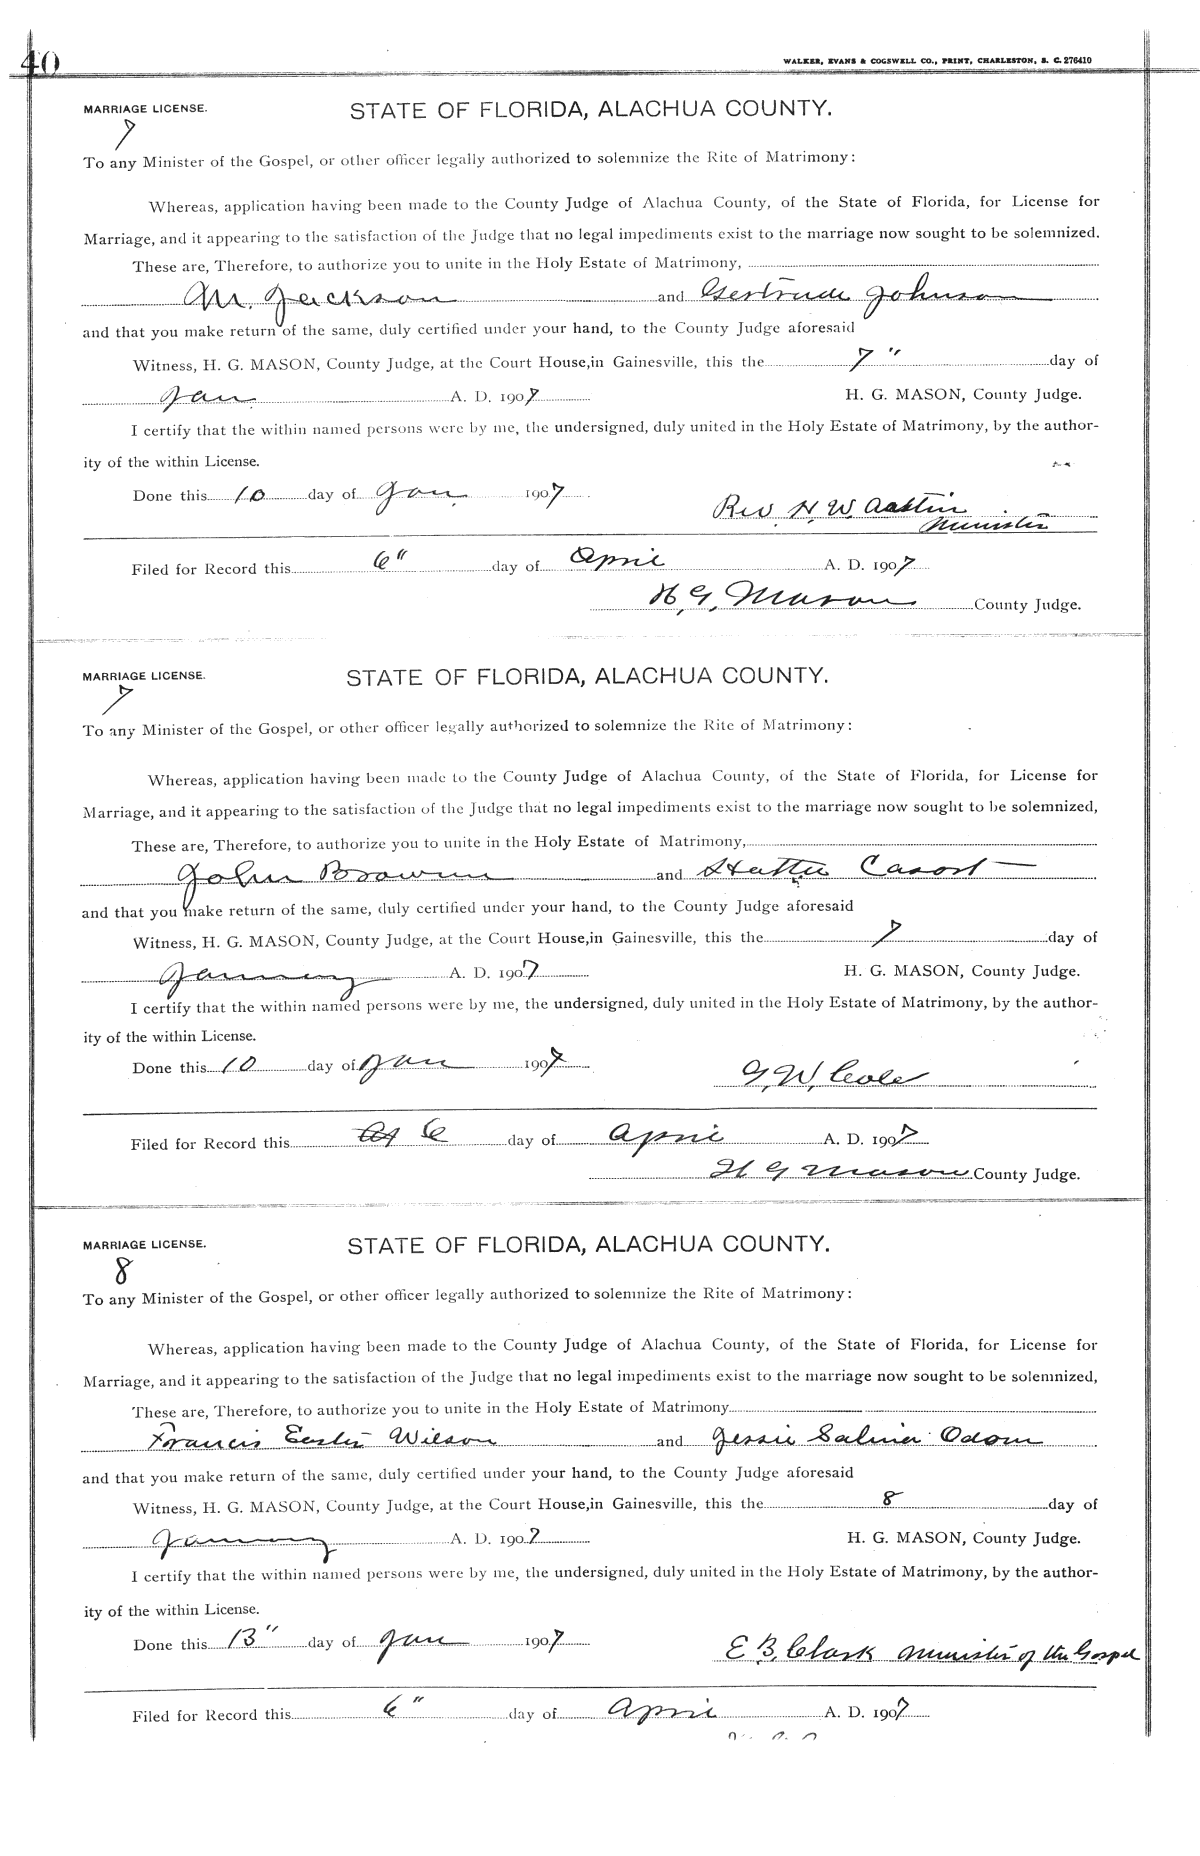 40
WALKER, EVANS & COGSWELL CO., PRINT, CHARLESTON, S. C. 276410
MARRIAGE LICENSE. STATE OF FLORIDA, ALACHUA COUNTY.
7
To any Minister of the Gospel, or other officer legally authorized to solemnize the Rite of Matrimony:
Whereas, application having been made to the County Judge of Alachua County, of the State of Florida, for License for
Marriage, and it appearing to the satisfaction of the Judge that no legal impediments exist to the marriage now sought to be solemnized.
These are, Therefore, to authorize you to unite in the Holy Estate of Matrimony,
M. Jackson and Gertrude Johnson
and that you make return of the same, duly certified under your hand, to the County Judge aforesaid
Witness, H. G. MASON, County Judge, at the Court House,in Gainesville, this the 7" day of
Jan A. D. 1907 H. G. MASON, County Judge.
I certify that the within named persons were by me, the undersigned, duly united in the Holy Estate of Matrimony, by the author-
ity of the within License.
Done this 10 day of Jan. 1907
Rev. H. W. Austin
Minister
Filed for Record this 6" day of April A. D. 1907
H. G. Mason County Judge.
MARRIAGE LICENSE. STATE OF FLORIDA, ALACHUA COUNTY.
7
To any Minister of the Gospel, or other officer legally authorized to solemnize the Rite of Matrimony:
Whereas, application having been made to the County Judge of Alachua County, of the State of Florida, for License for
Marriage, and it appearing to the satisfaction of the Judge that no legal impediments exist to the marriage now sought to be solemnized,
These are, Therefore, to authorize you to unite in the Holy Estate of Matrimony,
John Brown and Hattie
and that you make return of the same, duly certified under your hand, to the County Judge aforesaid
Witness, H. G. MASON, County Judge, at the Court House,in Gainesville, this the 7 day of
January A. D. 1907 H. G. MASON, County Judge.
I certify that the within named persons were by me, the undersigned, duly united in the Holy Estate of Matrimony, by the author-
ity of the within License.
Done this 10 day of Jan 1907
G. W. Cole
Filed for Record this 6 day of April A. D. 1907
H G Mason County Judge.
MARRIAGE LICENSE. STATE OF FLORIDA, ALACHUA COUNTY.
8
To any Minister of the Gospel, or other officer legally authorized to solemnize the Rite of Matrimony:
Whereas, application having been made to the County Judge of Alachua County, of the State of Florida, for License for
Marriage, and it appearing to the satisfaction of the Judge that no legal impediments exist to the marriage now sought to be solemnized,
These are, Therefore, to authorize you to unite in the Holy Estate of Matrimony
Francis Wilson and Jessie Salina Odom
and that you make return of the same, duly certified under your hand, to the County Judge aforesaid
Witness, H. G. MASON, County Judge, at the Court House,in Gainesville, this the 8 day of
January A. D. 1907 H. G. MASON, County Judge.
I certify that the within named persons were by me, the undersigned, duly united in the Holy Estate of Matrimony, by the author-
ity of the within License.
Done this 13" day of Jan 1907
E. B. Clark Minister of the Gospel
Filed for Record this 6" day of April A. D. 1907